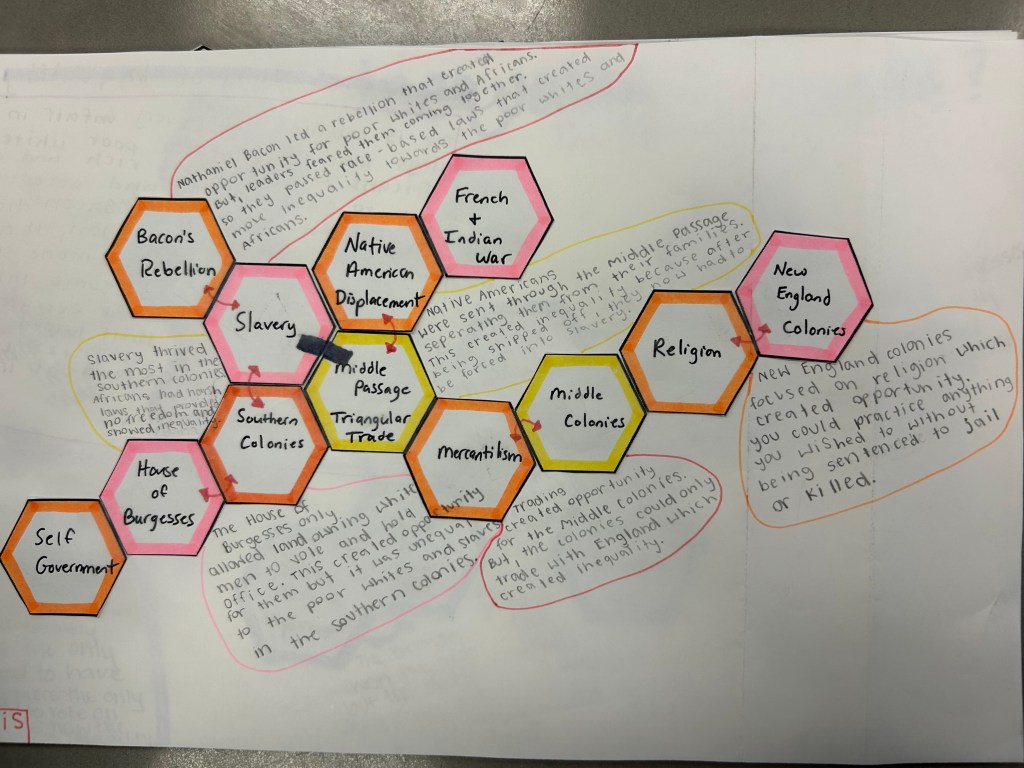 Nathaniel Bacon led a rebellion that created
opportunity for poor whites and Africans.
But, leaders feared them coming together.
so they passed race-based laws that created
more inequality towards the poor whites and
Africans.
Bacon's
Rebellion
French
+
Indian
War
Native
American
Displacement
Slavery
Native Americans
were sent through the middle passage
seperating them from their families.
This created inequality because after
being shipped off, they now had to
be forced into slavery.
New
England
Colonies
Religion
New England colonies
focused on religion which
created opportunity.
you could practice anything
you wished to without
being sentenced to jail
or killed.
Slavery thrived
the most in the
southern colonies
Africans had harsh
laws that provided
no freedom and
showed inequality.
Middle
Passage
Triangular
Trade
Southern
Colonies
Middle
Colonies
mercantilism
House
of
Burgesses
Self
Government
The House of
Burgesses only
allowed land owning white
men to vote and hold
office. This created opportunity
for them but it was unequal
to the poor whites and slaves
in the southern colonies.
Trading
created opportunity
for the Middle Colonies.
But, the colonies could only
trade with England which
created inequality.
is